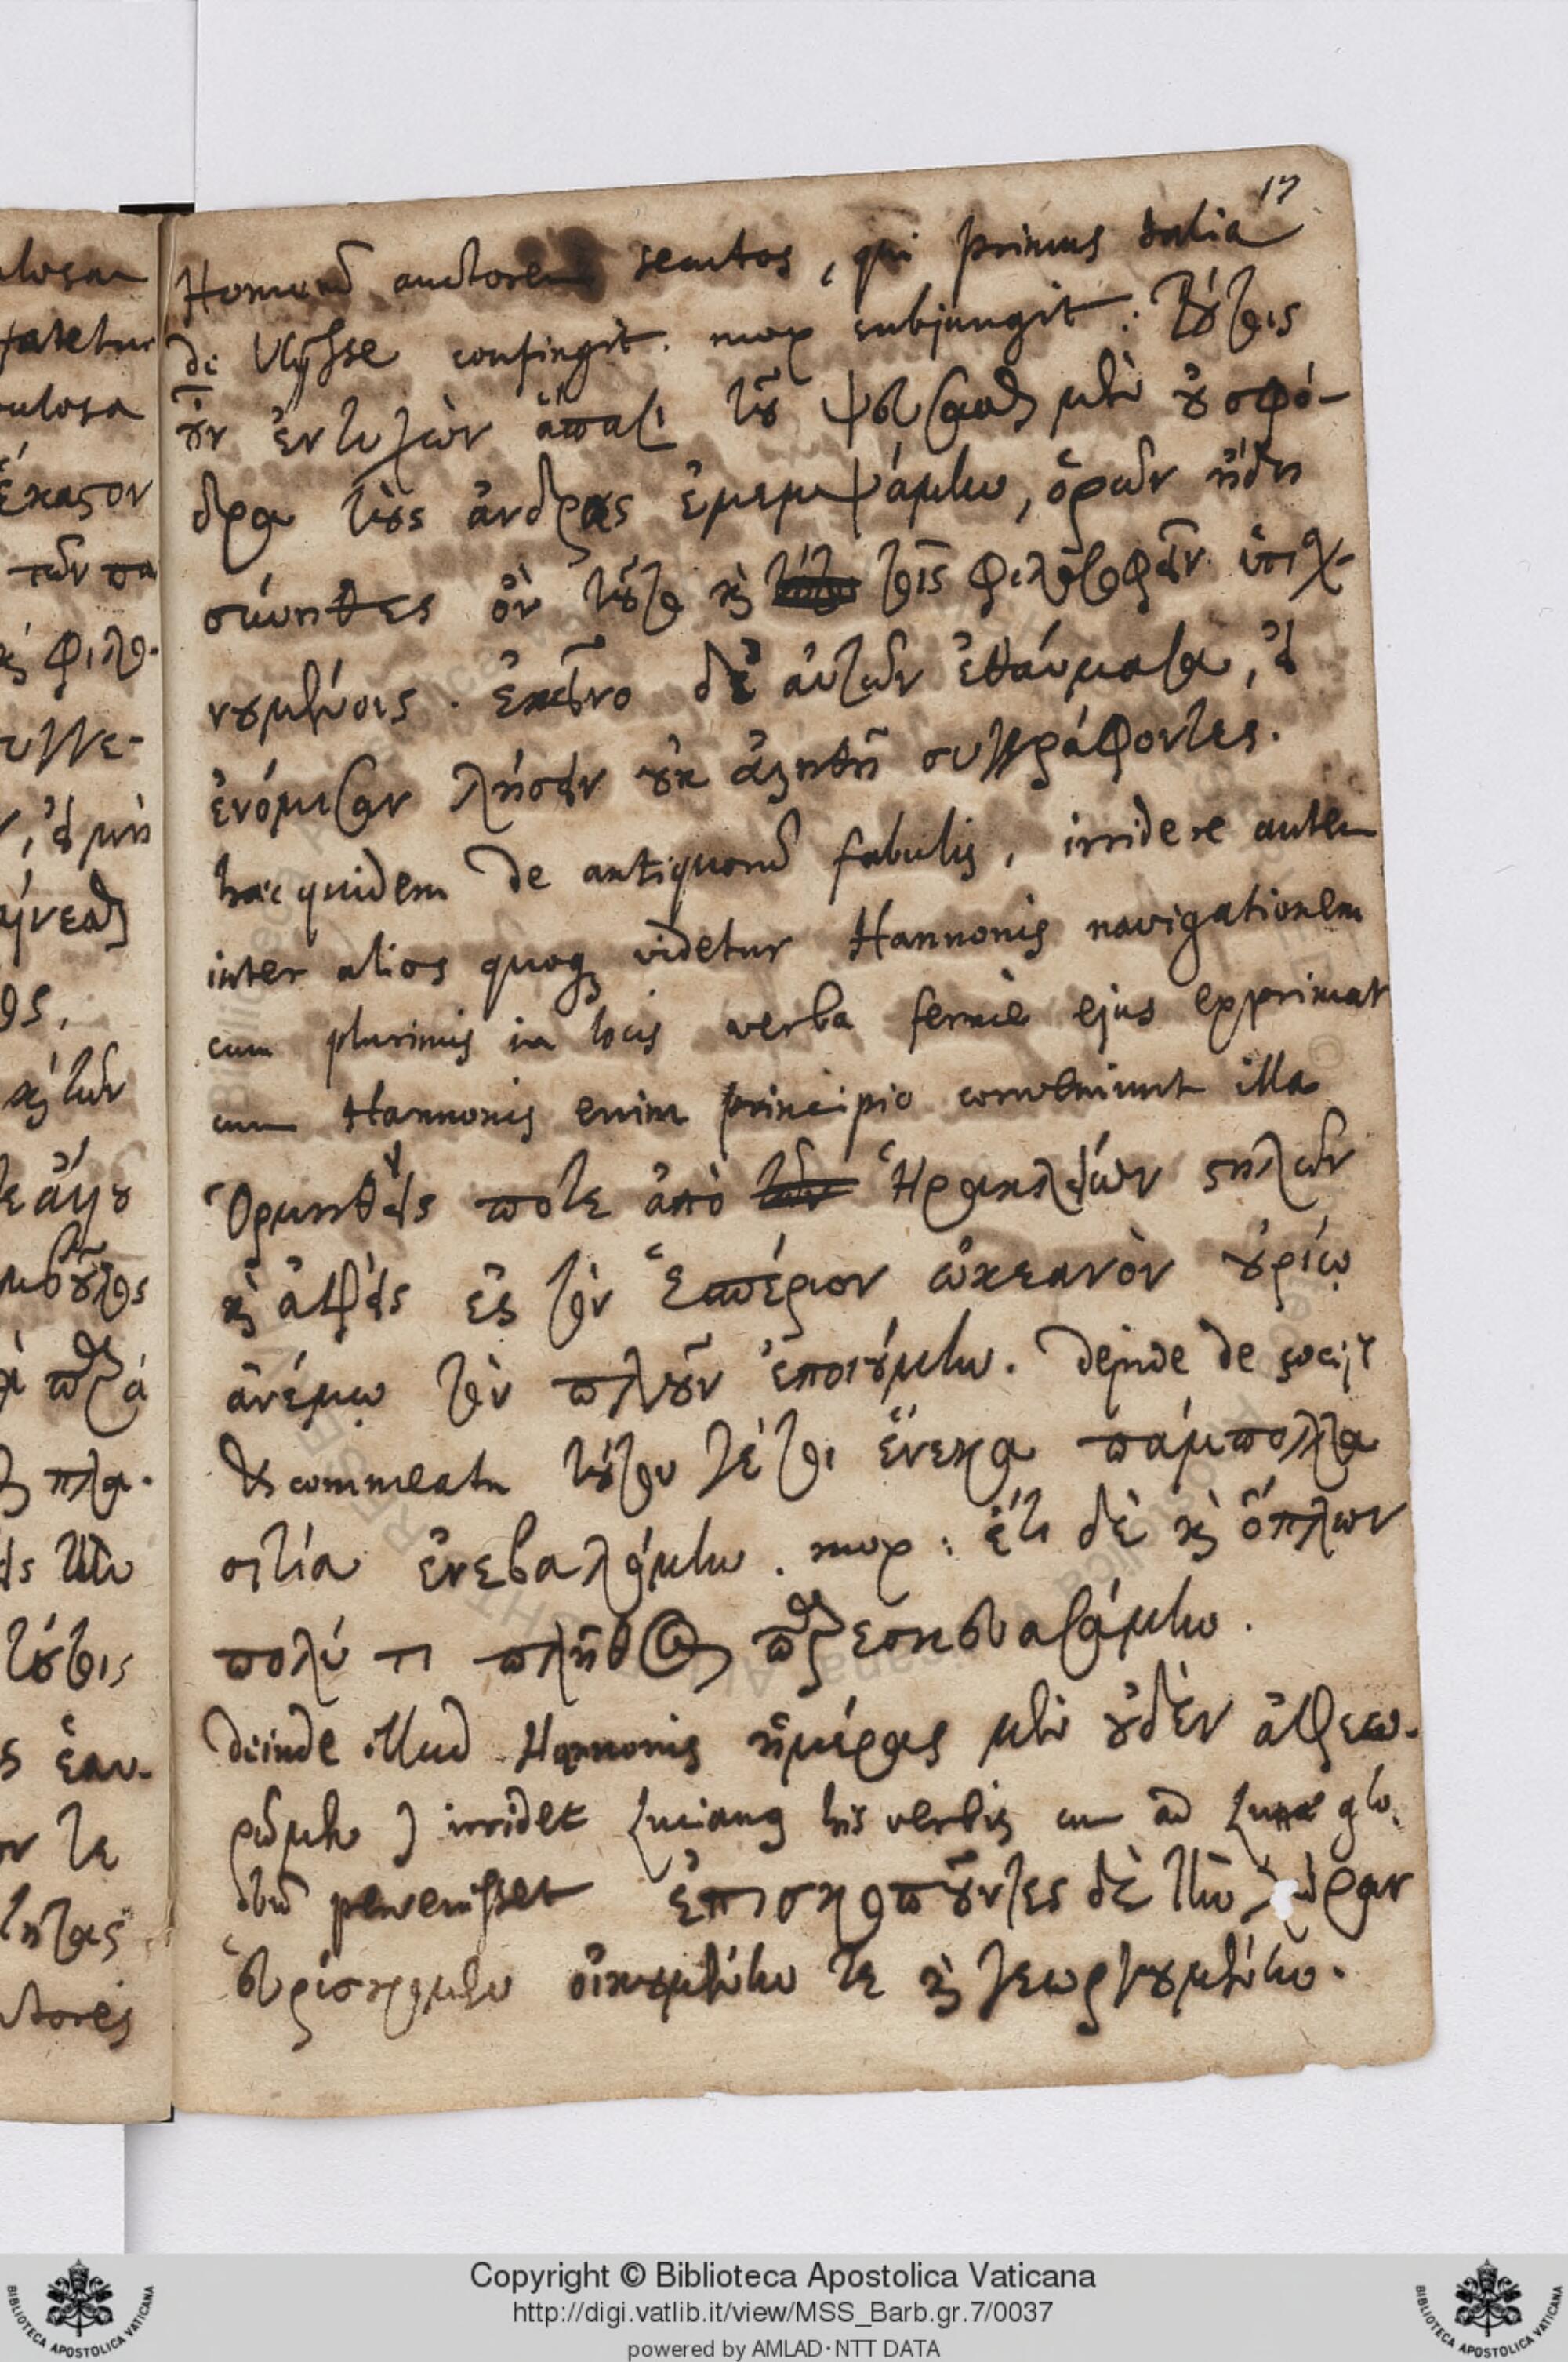 17
Homerū auctorem secutos, qui primus talia
de Ulysse confingit. mox subjungit: Τούτοις
οὖν ἐντυχὼν ἅπασι τοῦ ψεύσασθαι μὲν οὐ σφό-
δρα τοὺς ἄνδρας ἐμεμψάμην, ὁρῶν ἤδη
σύνηθες ὂν τοῦτο καὶ τοῖς φιλοσοφεῖν ὑπισχ-
νουμένοις. ἐκεῖνο δὲ αὐτῶν ἐθαύμασα, εἰ
ἐνόμισαν λήσειν οὐκ ἀληθῆ συγγράφοντες.
hæc quidem de antiquorū fabulis, irridere autem
inter alios quoq videtur Hannonis navigationem
cum plurimis in locis verba fermè ejus exprimat
cum Hannonis enim principio conveniunt illa
Ὁρμηθεὶς ποτε ἀπὸ Ἡρακλείων στηλῶν
καὶ ἀφεὶς ἐς τὸν Ἑσπέριον ὠκεανὸν οὐρίῳ
ἀνέμῳ τὸν πλοῦν ἐποιούμην. Deinde de socijs
& commeatu τούτου γέ τοι ἕνεκα πάμπολλα
σιτία ἐνεβαλόμην. mox: ἔτι δὲ καὶ ὅπλων
πολύ τι πλῆθος παρεσκευασάμην.
deinde illud Hannonis ἡμέρας μὲν οὐδὲν ἀφεω-
ρῶμεν) irridet Lucianus his verbis cum ad Lunæ glo-
bū pervenisset ἐπισκοποῦντες δὲ τὴν χώραν
εὑρίσκομεν οἰκουμένην τε καὶ γεωργουμένην.
Copyright © Biblioteca Apostolica Vaticana
http://digi.vatlib.it/view/MSS_Barb.gr.7/0037
powered by AMLAD·NTT DATA
BIBLIOTECA APOSTOLICA VATICANA
BIBLIOTECA APOSTOLICA VATICANA